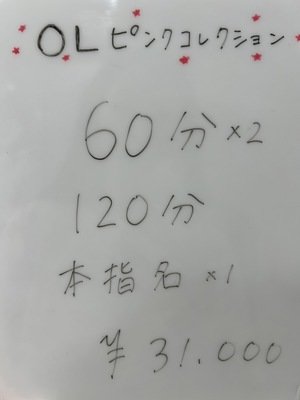 OLピンクコレクション
60分×2
120分
本指名×1
¥31.000